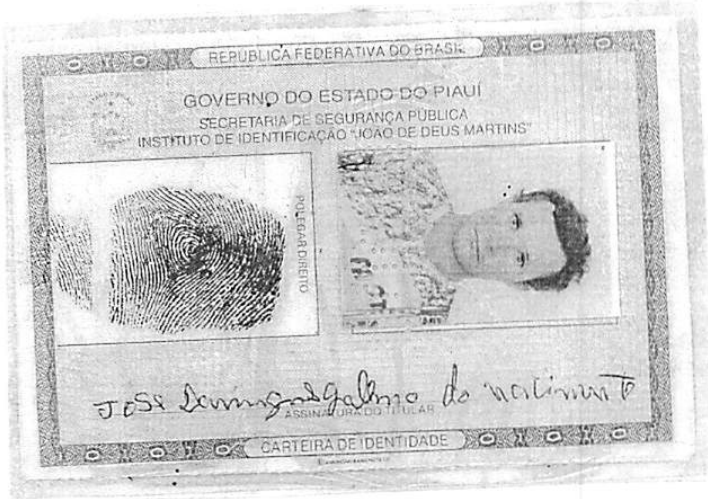 REPÚBLICA FEDERATIVA DO BRASIL
GOVERNO DO ESTADO DO PIAUÍ
SECRETARIA DE SEGURANÇA PÚBLICA
INSTITUTO DE IDENTIFICAÇÃO "JOÃO DE DEUS MARTINS"
POLEGAR DIREITO
José Domingos Galeno do nascimento
ASSINATURA DO TITULAR
CARTEIRA DE IDENTIDADE